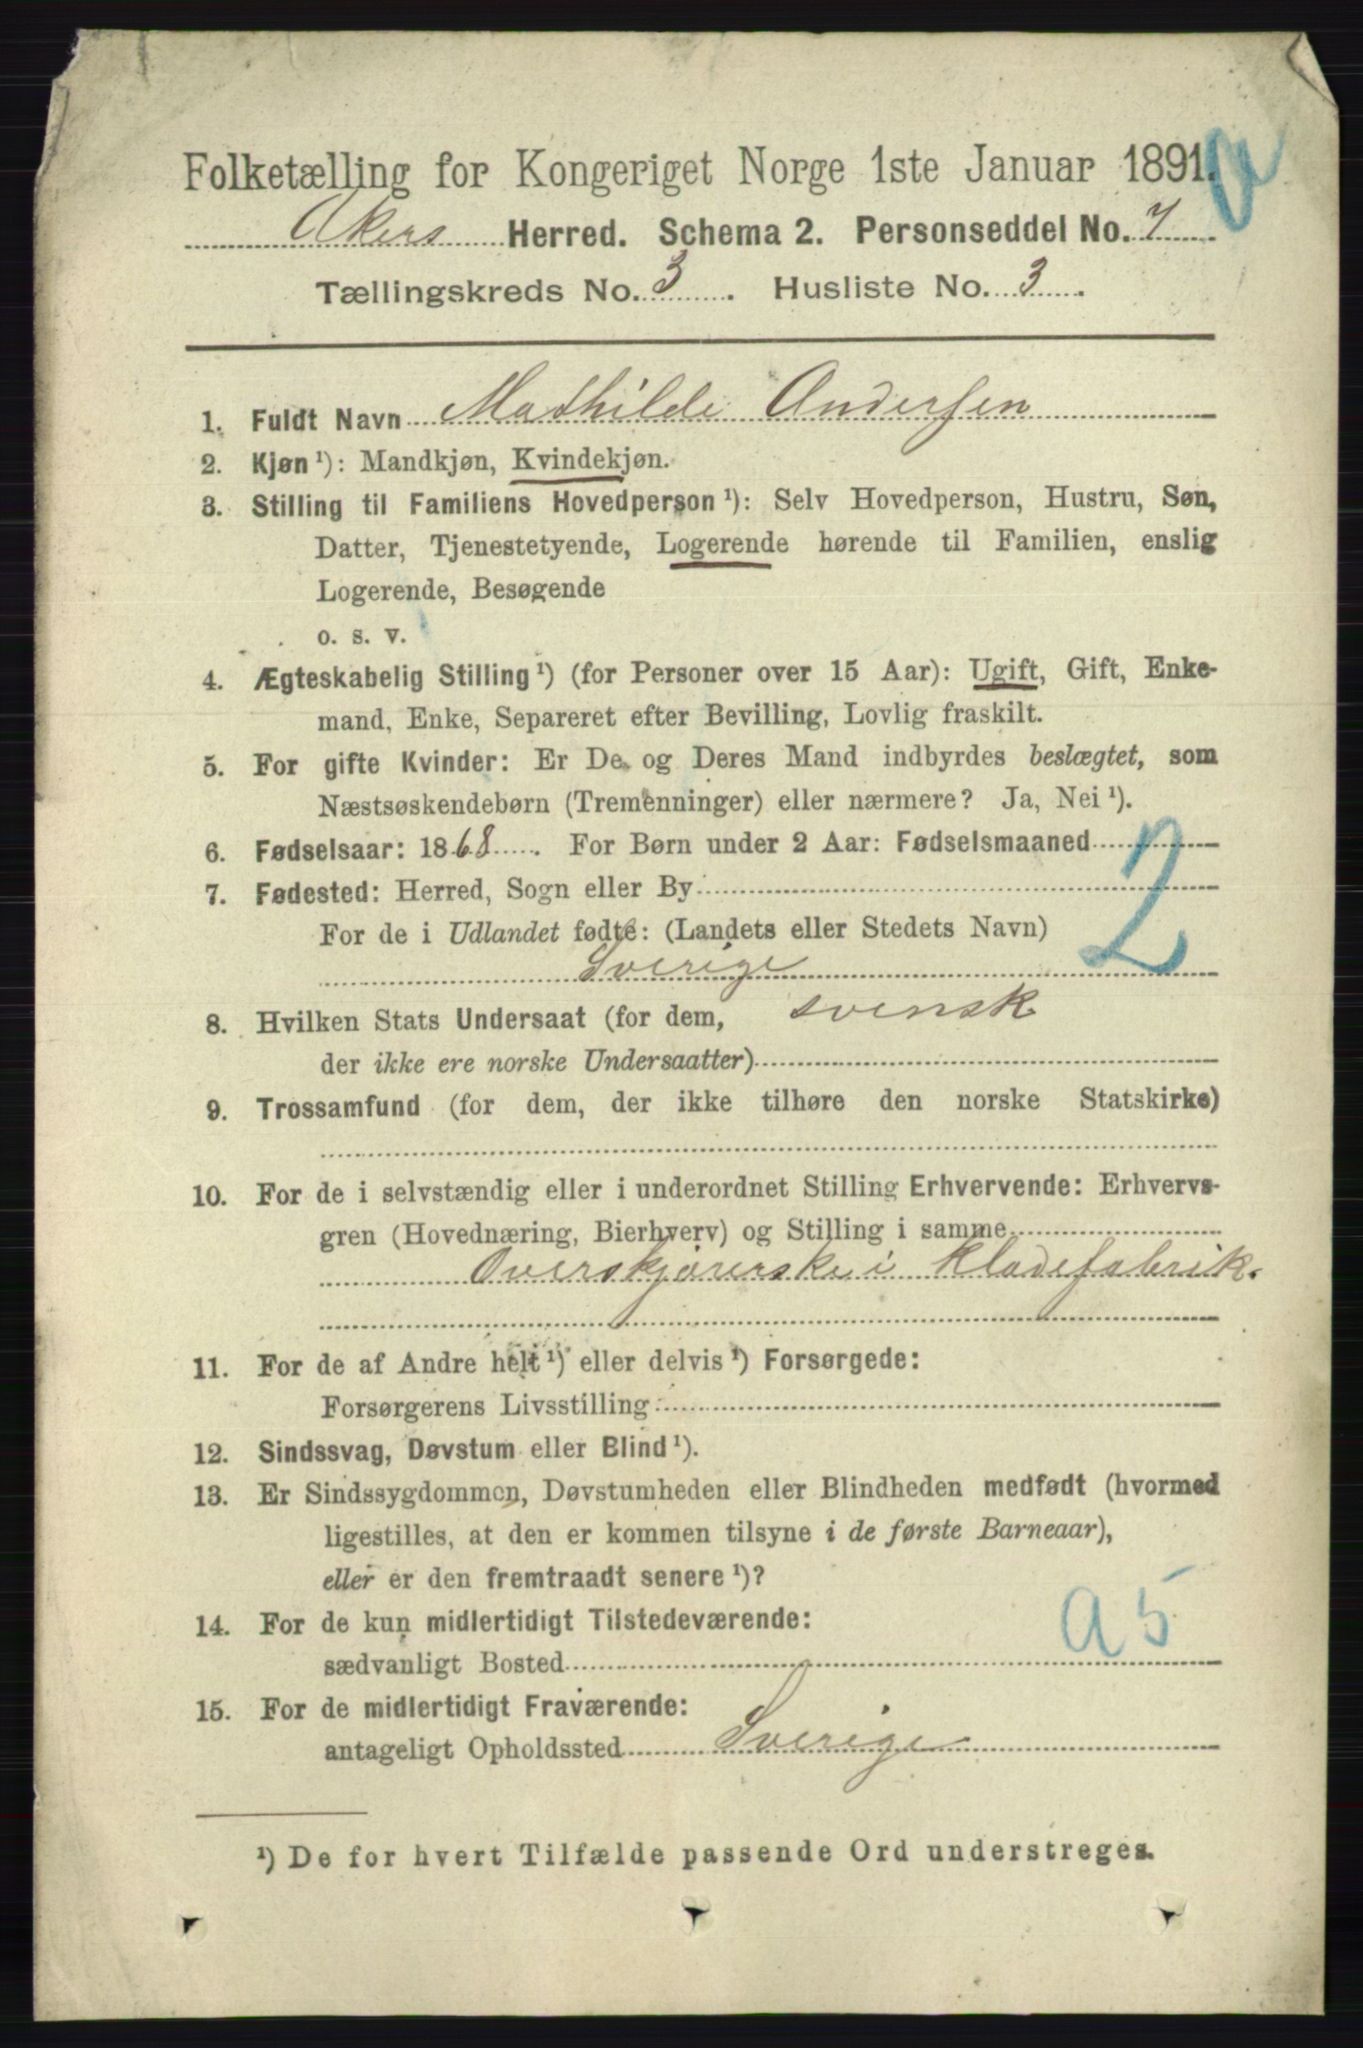 Folketælling for Kongeriget Norge 1ste Januar 1891.
Akers Herred. Schema 2. Personseddel No. 7
Tællingskreds No. 3. Husliste No. 3.
1. Fuldt Navn Mathilde Andersen
2. Kjøn ¹): Mandkjøn, Kvindekjøn.
3. Stilling til Familiens Hovedperson ¹): Selv Hovedperson, Hustru, Søn,
Datter, Tjenestetyende, Logerende hørende til Familien, enslig
Logerende, Besøgende
o. s. v.
4. Ægteskabelig Stilling ¹) (for Personer over 15 Aar): Ugift, Gift, Enke-
mand, Enke, Separeret efter Bevilling, Lovlig fraskilt.
5. For gifte Kvinder: Er De og Deres Mand indbyrdes beslægtet, som
Næstsøskendebørn (Tremenninger) eller nærmere? Ja, Nei ¹).
6. Fødselsaar: 1868. For Børn under 2 Aar: Fødselsmaaned
7. Fødested: Herred, Sogn eller By
For de i Udlandet fødte: (Landets eller Stedets Navn) 2
Sverige
8. Hvilken Stats Undersaat (for dem, svensk
der ikke ere norske Undersaatter)
9. Trossamfund (for dem, der ikke tilhøre den norske Statskirke)
10. For de i selvstændig eller i underordnet Stilling Erhvervende: Erhvervs-
gren (Hovednæring, Bierhverv) og Stilling i samme
Overskjørerske i kladefabrik.
11. For de af Andre helt ¹) eller delvis ¹) Forsørgede:
Forsørgerens Livsstilling
12. Sindssvag, Døvstum eller Blind ¹).
13. Er Sindssygdommen, Døvstumheden eller Blindheden medfødt (hvormed
ligestilles, at den er kommen tilsyne i de første Barneaar),
eller er den fremtraadt senere ¹)?
14. For de kun midlertidigt Tilstedeværende: a 5
sædvanligt Bosted
15. For de midlertidigt Fraværende:
antageligt Opholdssted Sverige
¹) De for hvert Tilfælde passende Ord understreges.